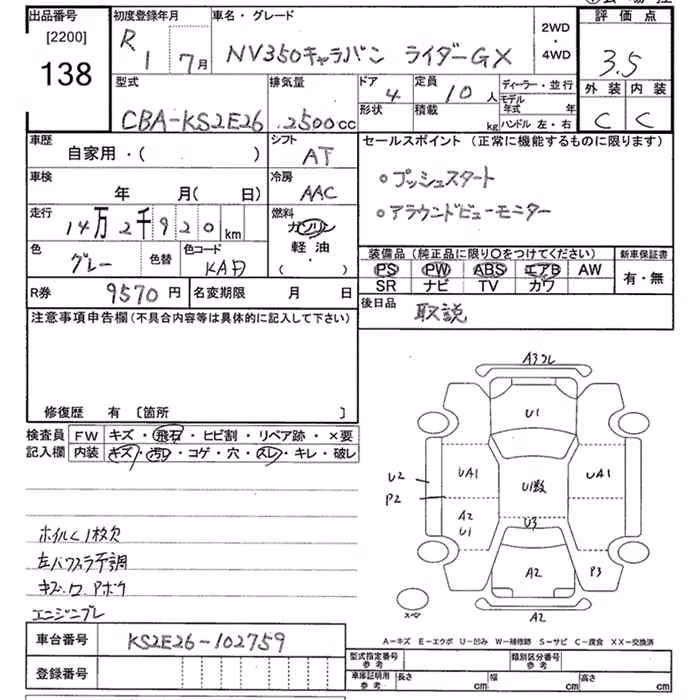 出品番号 初度登録年月 車名・グレード 2WD・4WD 評価点
[2200] R 1 7月 NV350キャラバン ライダーGX 3.5
138 型式 排気量 ドア 定員 ディーラー・並行 外装 内装
CBA-KS2E26 2500cc 4 10人 モデル年式 年 C C
形状 積載 kg ハンドル 左・右
車歴 シフト セールスポイント (正常に機能するものに限ります)
自家用・( ) AT
車検 冷房 ○プッシュスタート
年 月( 日) AAC
走行 燃料 ○アラウンドビューモニター
14万2千920km ガソリン
色 色替 色コード 軽油・( ) 装備品 (純正品に限り○をつけてください) 新車保証書
グレー KAD PS PW ABS エアB AW 有・無
R券 9570円 名変期限 月 日 SR ナビ TV カワ
注意事項申告欄(不具合内容等は具体的に記入して下さい) 後日品 取説
修復歴 有 〔箇所 〕
検査員 FW キズ・飛石・ヒビ割・リペア跡・×要
記入欄 内装 キズ・汚レ・コゲ・穴・スレ・キレ・破レ
A3フレ
U1
UA1 U1数 UA1
U2
P2
A2 U1 U3
A2 P3
スペア
A2
ホイルC1枚欠
左パワスラ不調
キズ・ワ・Aボク
エンジンブレ
A−キズ E−エクボ U−凹み W−補修跡 S−サビ C−腐食 XX−交換済
車台番号 KS2E26-102759
型式指定番号 参考 類別区分番号 参考
登録番号 車庫証明用 参考 長さ cm 幅 cm 高さ cm